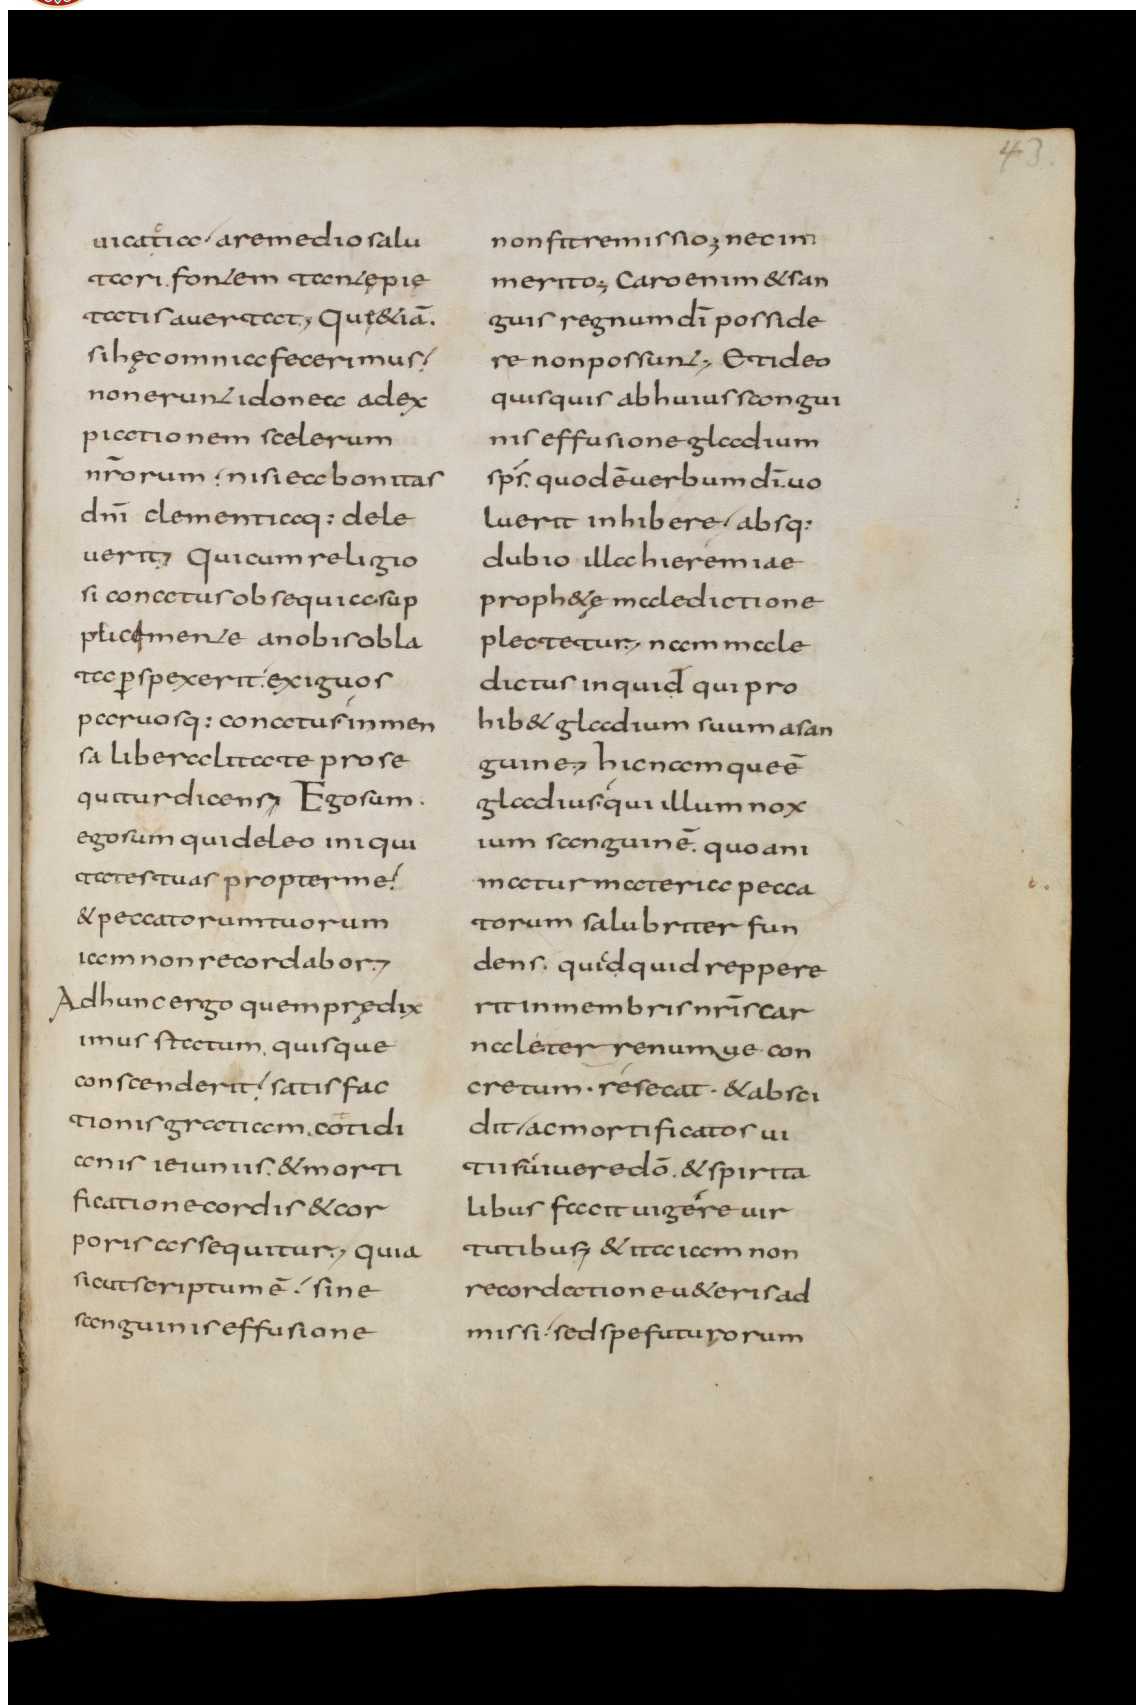 43.
uicatica aremedio salu
tari fontem tantępie
tatis auertat, Quę&iā.
si hęc omnia fecerimus;
non erunt idonea adex
piationem scelerum
nr̄orum; nisi ea bonitas
dn̄i clementiaq: dele
uerit, Qui cum religio
si conatus obsequia sup
plicamente a nobis obla
ta ꝑspexerit. exiguos
paruosq: conatus inmen
sa liberalitate prose
quitur dicens, Ego sum.
ego sum qui deleo iniqui
tates tuas propter me;
& peccatorum tuorum
iam non recordabor,
Ad hunc ergo quem prędix
imus statum. quisque
conscenderit; satisfac
tionis gratiam. cotidi
anis ieiuniis. & morti
ficatione cordis & cor
poris assequitur, quia
sicut scriptum ē; sine
sanguinis effusione
non fit remissio; nec im
merito; Caro enim & san
guis regnum dī posside
re non possunt, Et ideo
quisquis ab huius sangui
nis effusione gladium
sps̄. quod ē uerbum dī. uo
luerit inhibere, absq:
dubio illa hieremiae
proph&ę maledictione
plectetur, nam male
dictus inquid qui pro
hib& gladium suum a san
guine, hic namque ē
gladius qui illum nox
ium sanguinē. quo ani
matur materia pecca
torum salubriter fun
dens. quidquid reppere
rit in membris nr̄is car
nale terrenumue con
cretum. resecat. & absci
dit, ac mortificatos ui
tiis uiuere dō. & spirita
libus facit uigere uir
tutibus, & ita iam non
recordatione u&eris ad
missi; sed spe futurorum